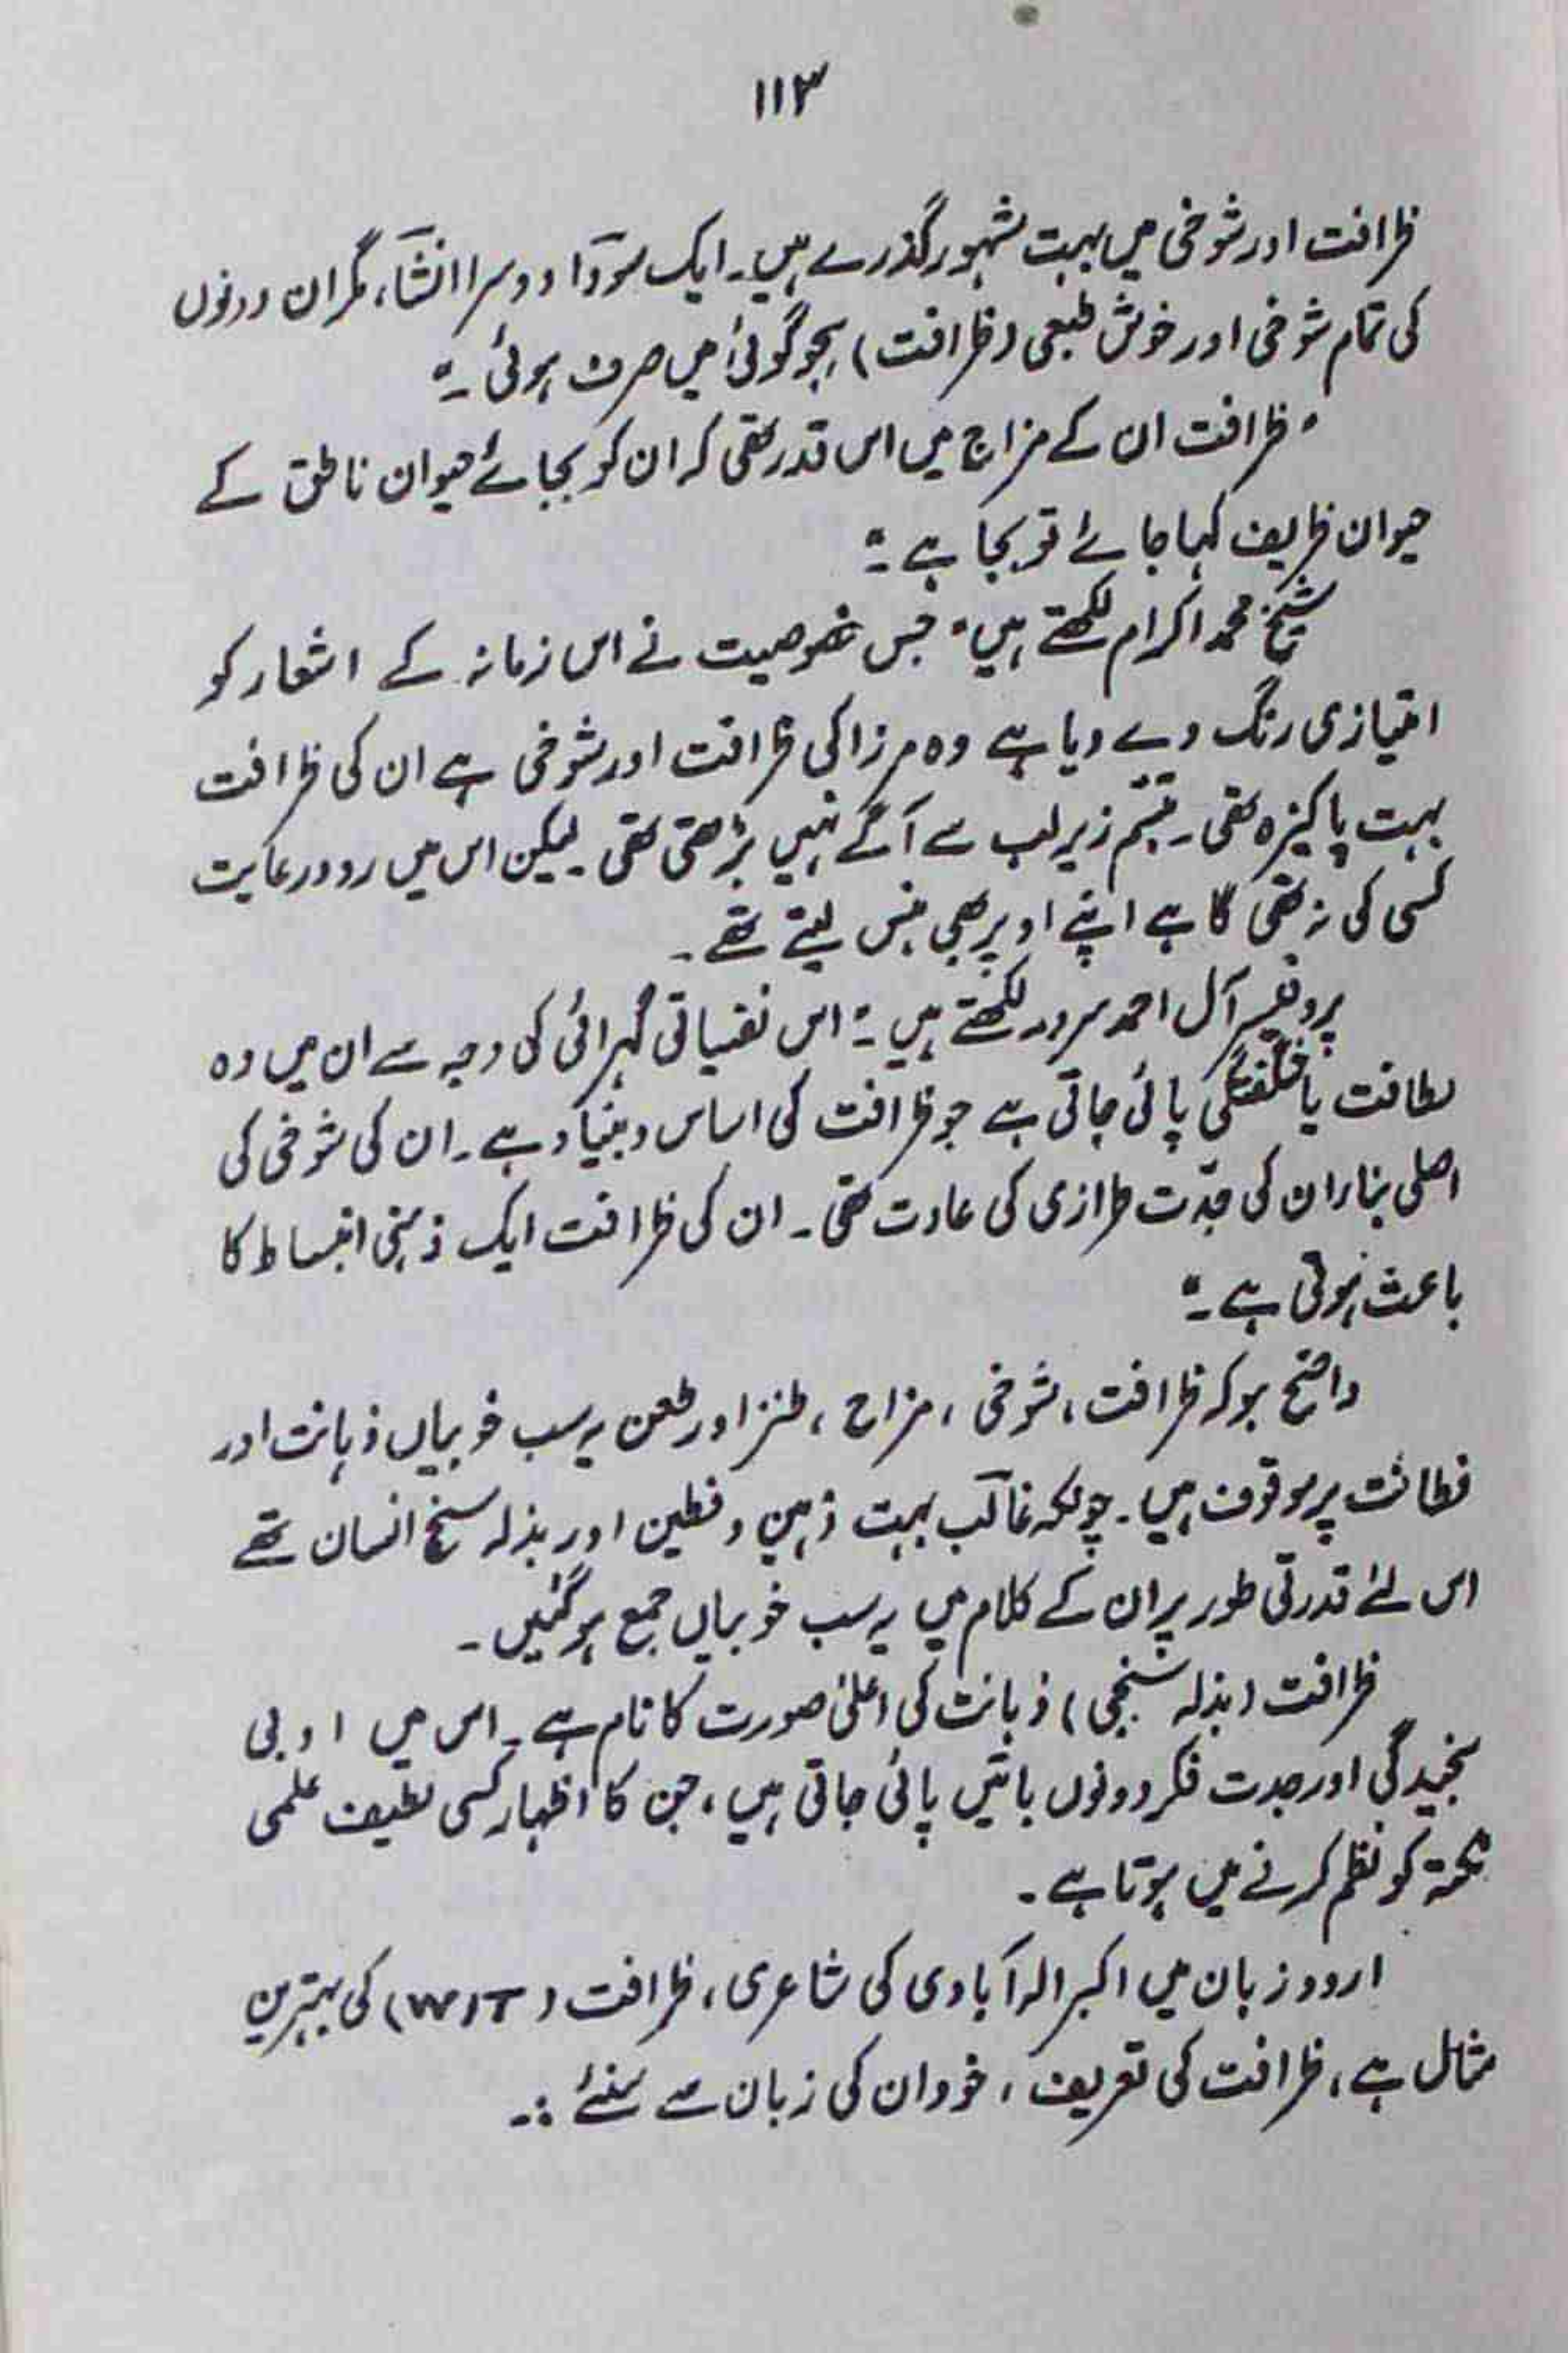 ۱۱۳
ظرافت اور شوخی میں بہت مشہور گذرے ہیں۔ ایک سوداؔ دوسرا انشاؔء، مگر ان دونوں
کی تمام شوخی اور خوش طبعی (ظرافت) ہجو گوئی میں صرف ہوئی۔"
"ظرافت ان کے مزاج میں اس قدر تھی کہ ان کو بجائے حیوان ناطق کے
حیوان ظریف کہا جائے تو بجا ہے۔"
شیخ محمد اکرام لکھتے ہیں" جس خصوصیت نے اس زمانہ کے اشعار کو
امتیازی رنگ دے دیا ہے وہ مرزا کی ظرافت اور شوخی ہے ان کی ظرافت
بہت پاکیزہ تھی۔ تبسّم زیر لب سے آگے نہیں بڑھتی تھی۔ لیکن اس میں رو و رعایت
کسی کی نہ تھی گاہے اپنے اوپر بھی ہنس لیتے تھے۔
پروفیسر آل احمد سرور لکھتے ہیں۔" اس نفسیاتی گہرائی کی وجہ سے ان میں وہ
لطافت یا شگفتگی پائی جاتی ہے جو ظرافت کی اساس و بنیاد ہے۔ ان کی شوخی کی
اصلی بناء ان کی جدّت طرازی کی عادت تھی۔ ان کی ظرافت ایک ذہنی انبساط کا
باعث ہوتی ہے۔"
واضح ہو کہ ظرافت، شوخی، مزاح، طنز اور طعن یہ سب خوبیاں ذہانت اور
فطانت پر موقوف ہیں۔ چونکہ غالبؔ بہت ذہین و فطین اور بذلہ سنج انسان تھے
اس لئے قدرتی طور پر ان کے کلام میں یہ سب خوبیاں جمع ہو گئیں۔
ظرافت (بذلہ سنجی) ذہانت کی اعلیٰ صورت کا نام ہے۔ اس میں ادبی
سنجیدگی اور جدت فکر دونوں باتیں پائی جاتی ہیں، جن کا اظہار کسی لطیف علمی
نکتہ کو نظم کرنے میں ہوتا ہے۔
اردو زبان میں اکبر الہ آبادی کی شاعری، ظرافت (WIT) کی بہترین
مثال ہے، ظرافت کی تعریف، خود ان کی زبان سے سنئے :۔